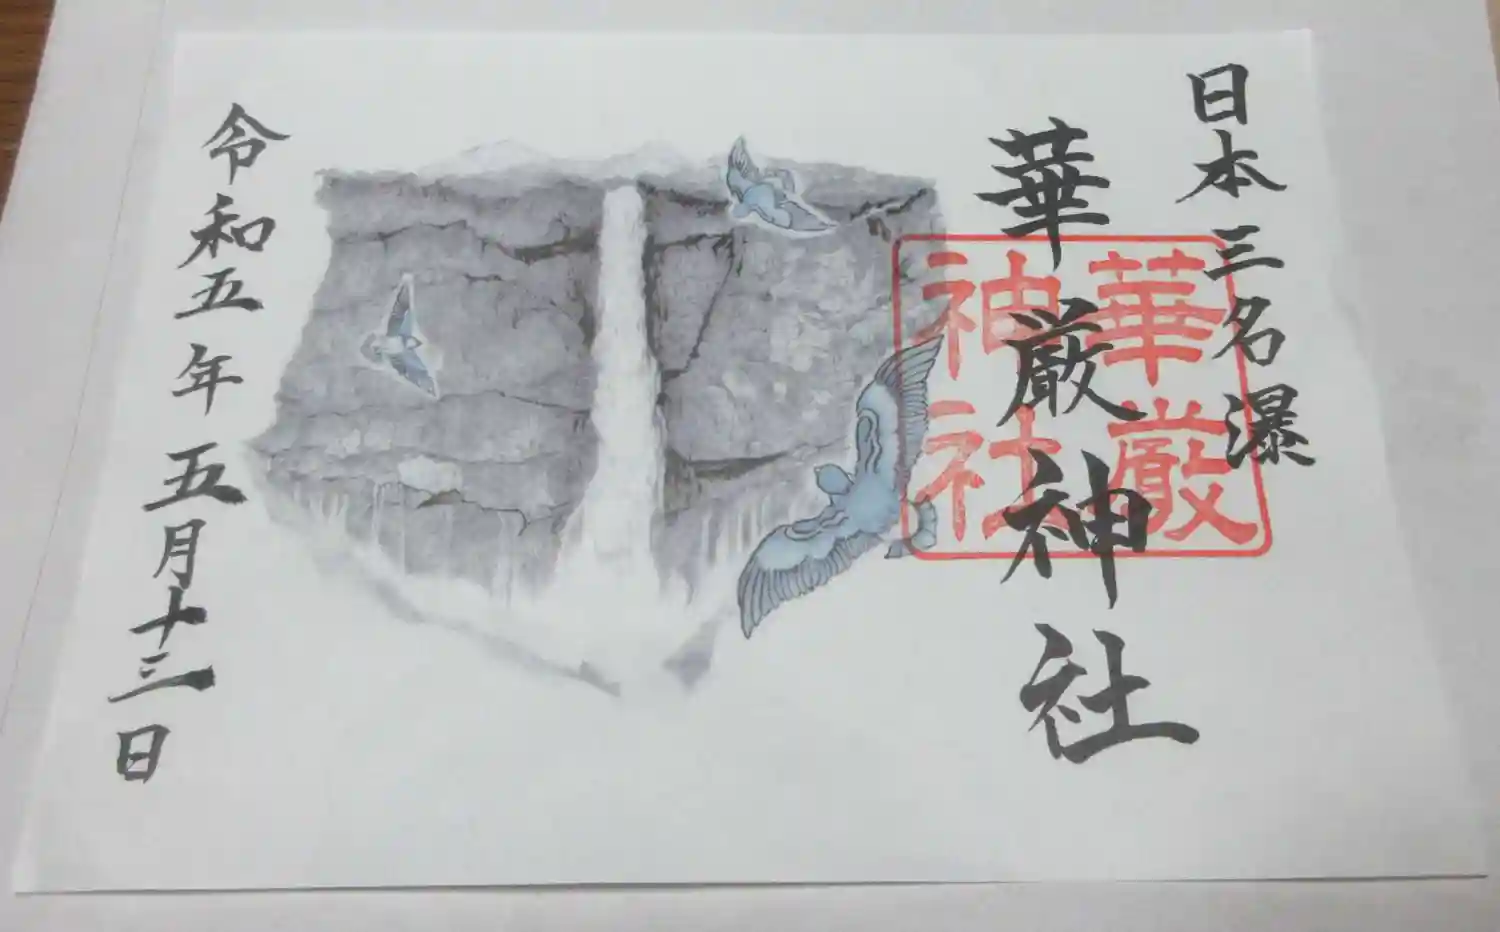 日本三名瀑
華厳神社
華厳
神社
令和五年五月十三日